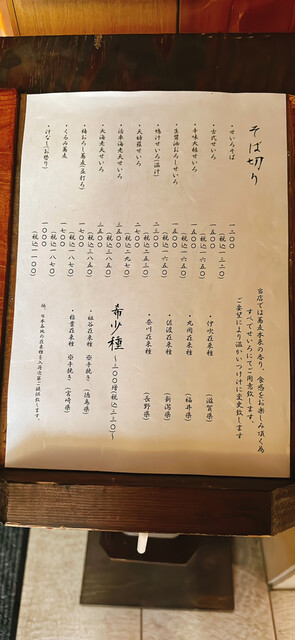 そば切り
・せいろそば 一二〇〇
(税込一三二〇)
・古式せいろ 一五〇〇
(税込一六五〇)
・辛味大根せいろ 一五〇〇
(税込一六五〇)
・生醤油おろしせいろ 一五〇〇
(税込一六五〇)
・鴨汁せいろ(温汁)
・天婦羅せいろ 二七〇〇
(税込二九七〇)
・活車海老天せいろ 三五〇〇
(税込三八五〇)
・大海老天せいろ 三五〇〇
(税込三八五〇)
・梅おろし蕎麦 一七〇〇
(税込一八七〇)
・くるみ蕎麦 一七〇〇
(税込一八七〇)
一〇〇〇
(税込一一〇〇)
当店では蕎麦本来の香り、食感をお楽しみ頂く為
すべてせいろにてご用意致します。
ご要望により温かいつけ汁に変更致します
希少種 ～三〇〇増(税込三三〇)～
・伊吹在来種 (滋賀県)
・丸岡在来種 (福井県)
・佐渡在来種 (新潟県)
・奈川在来種 (長野県)
・祖谷在来種 ※手挽き (徳島県)
・椎葉在来種 ※手挽き (宮崎県)
尚、日本各地の在来種を入荷次第ご提供致します。